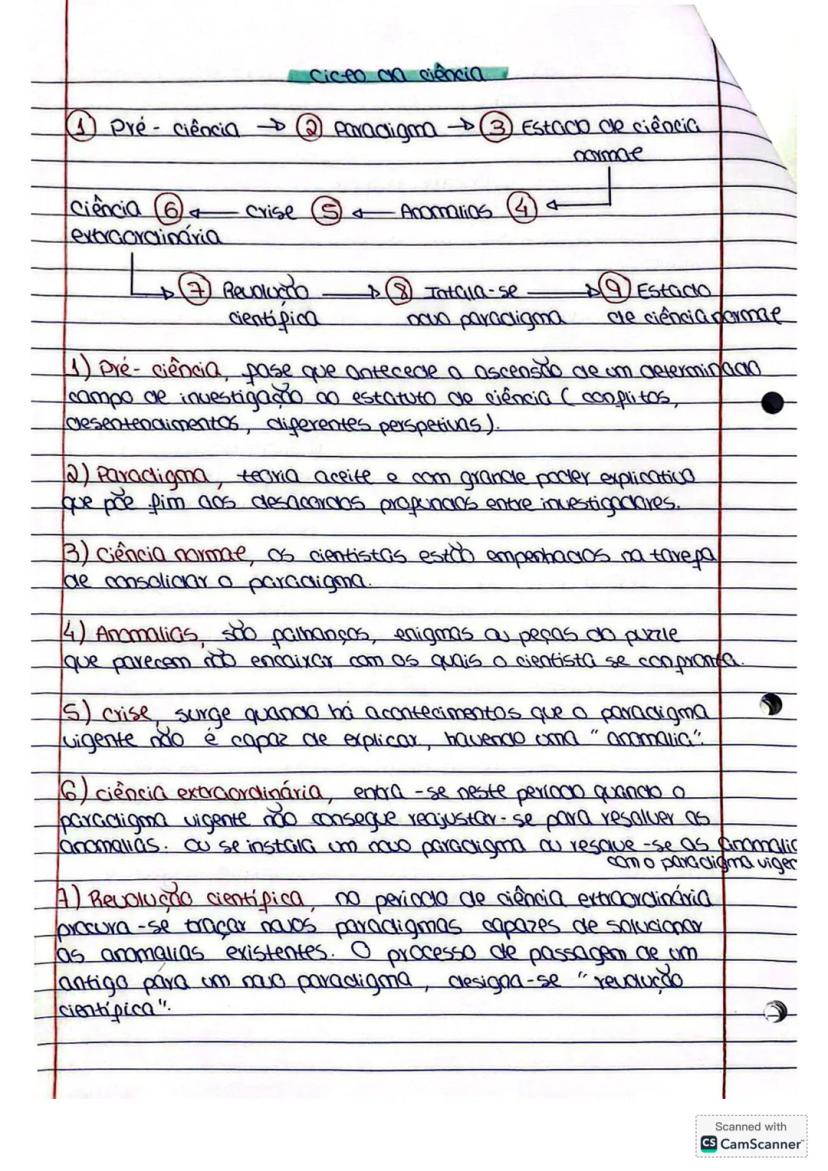 Ciclo da ciência
① Pré-ciência → ② Paradigma → ③ Estado de ciência
normal
ciência ⑥ ← crise ⑤ ← Anomalias ④ ←
extraordinária
→ ⑦ Revolução → ⑧ Intala-se → ⑨ Estado
científica novo paradigma de ciência normal
1) Pré-ciência, fase que antecede a ascensão de um determinado
campo de investigação ao estatuto de ciência (conflitos,
desentendimentos, diferentes perspetivas).
2) Paradigma, teoria aceite e com grande poder explicativo
que põe fim aos desacordos profundos entre investigadores.
3) Ciência normal, os cientistas estão empenhados na tarefa
de consolidar o paradigma.
4) Anomalias, são falhanços, enigmas ou peças do puzzle
que parecem não encaixar com os quais o cientista se confronta.
5) crise, surge quando há acontecimentos que o paradigma
vigente não é capaz de explicar, havendo uma "anomalia".
6) ciência extraordinária, entra-se neste período quando o
paradigma vigente não consegue reajustar-se para resolver as
anomalias. Ou se instala um novo paradigma ou resolve-se as anomalia
com o paradigma viger
7) Revolução científica, no período de ciência extraordinária
procura-se traçar novos paradigmas capazes de solucionar
as anomalias existentes. O processo de passagem de um
antigo para um novo paradigma, designa-se "revolução
científica".
Scanned with
CS CamScanner